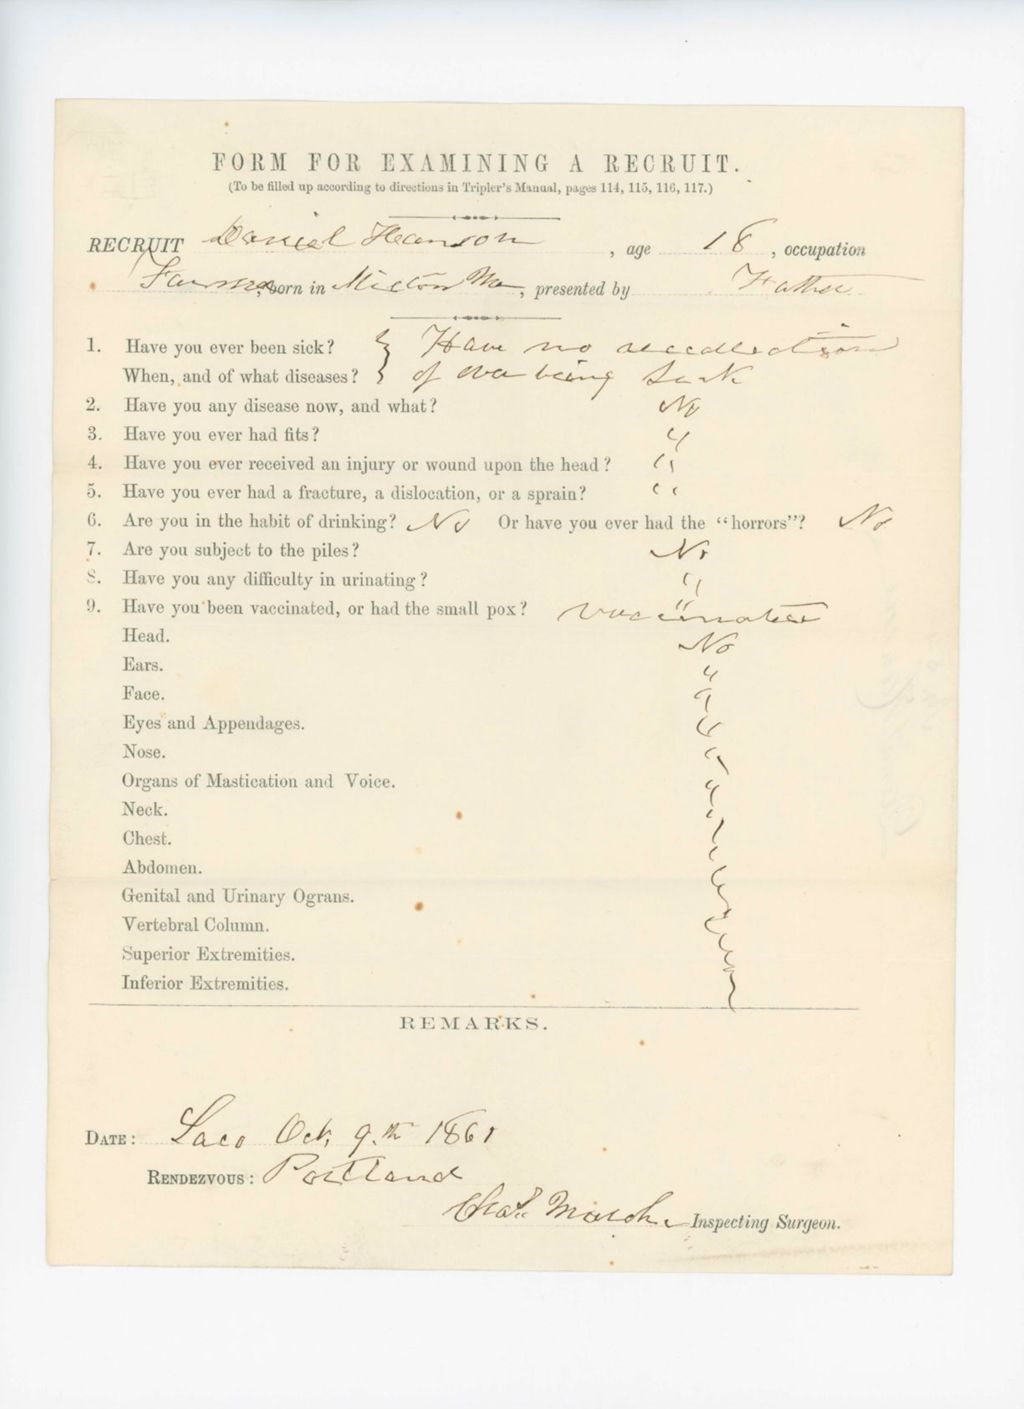 FORM FOR EXAMINING A RECRUIT.
(To be filled up according to directions in Tripler's Manual, pages 114, 115, 116, 117.)
RECRUIT Daniel Hanson, age 18, occupation
Farmer, born in Milton Me, presented by Father
1. Have you ever been sick? } Have no recollection
When, and of what diseases? } of ever being Sick
2. Have you any disease now, and what? No
3. Have you ever had fits? "
4. Have you ever received an injury or wound upon the head? "
5. Have you ever had a fracture, a dislocation, or a sprain? "
6. Are you in the habit of drinking? No Or have you ever had the "horrors"? No
7. Are you subject to the piles? No
8. Have you any difficulty in urinating? "
9. Have you been vaccinated, or had the small pox? vaccinated
Head. No
Ears. "
Face. "
Eyes and Appendages. "
Nose. "
Organs of Mastication and Voice. "
Neck. "
Chest. "
Abdomen. "
Genital and Urinary Ograns. "
Vertebral Column. "
Superior Extremities. "
Inferior Extremities. "
REMARKS.
DATE: Saco Oct, 9.th 1861
RENDEZVOUS: Portland
Inspecting Surgeon.